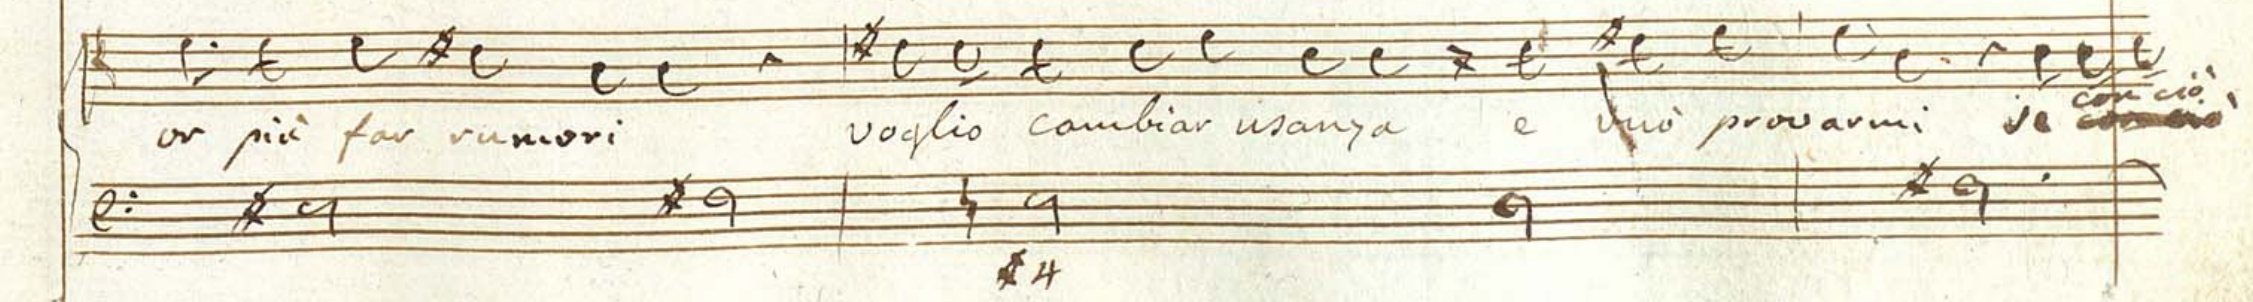 or più far rumori voglio cambiar usanza e vuò provarmi se con ciò
#4